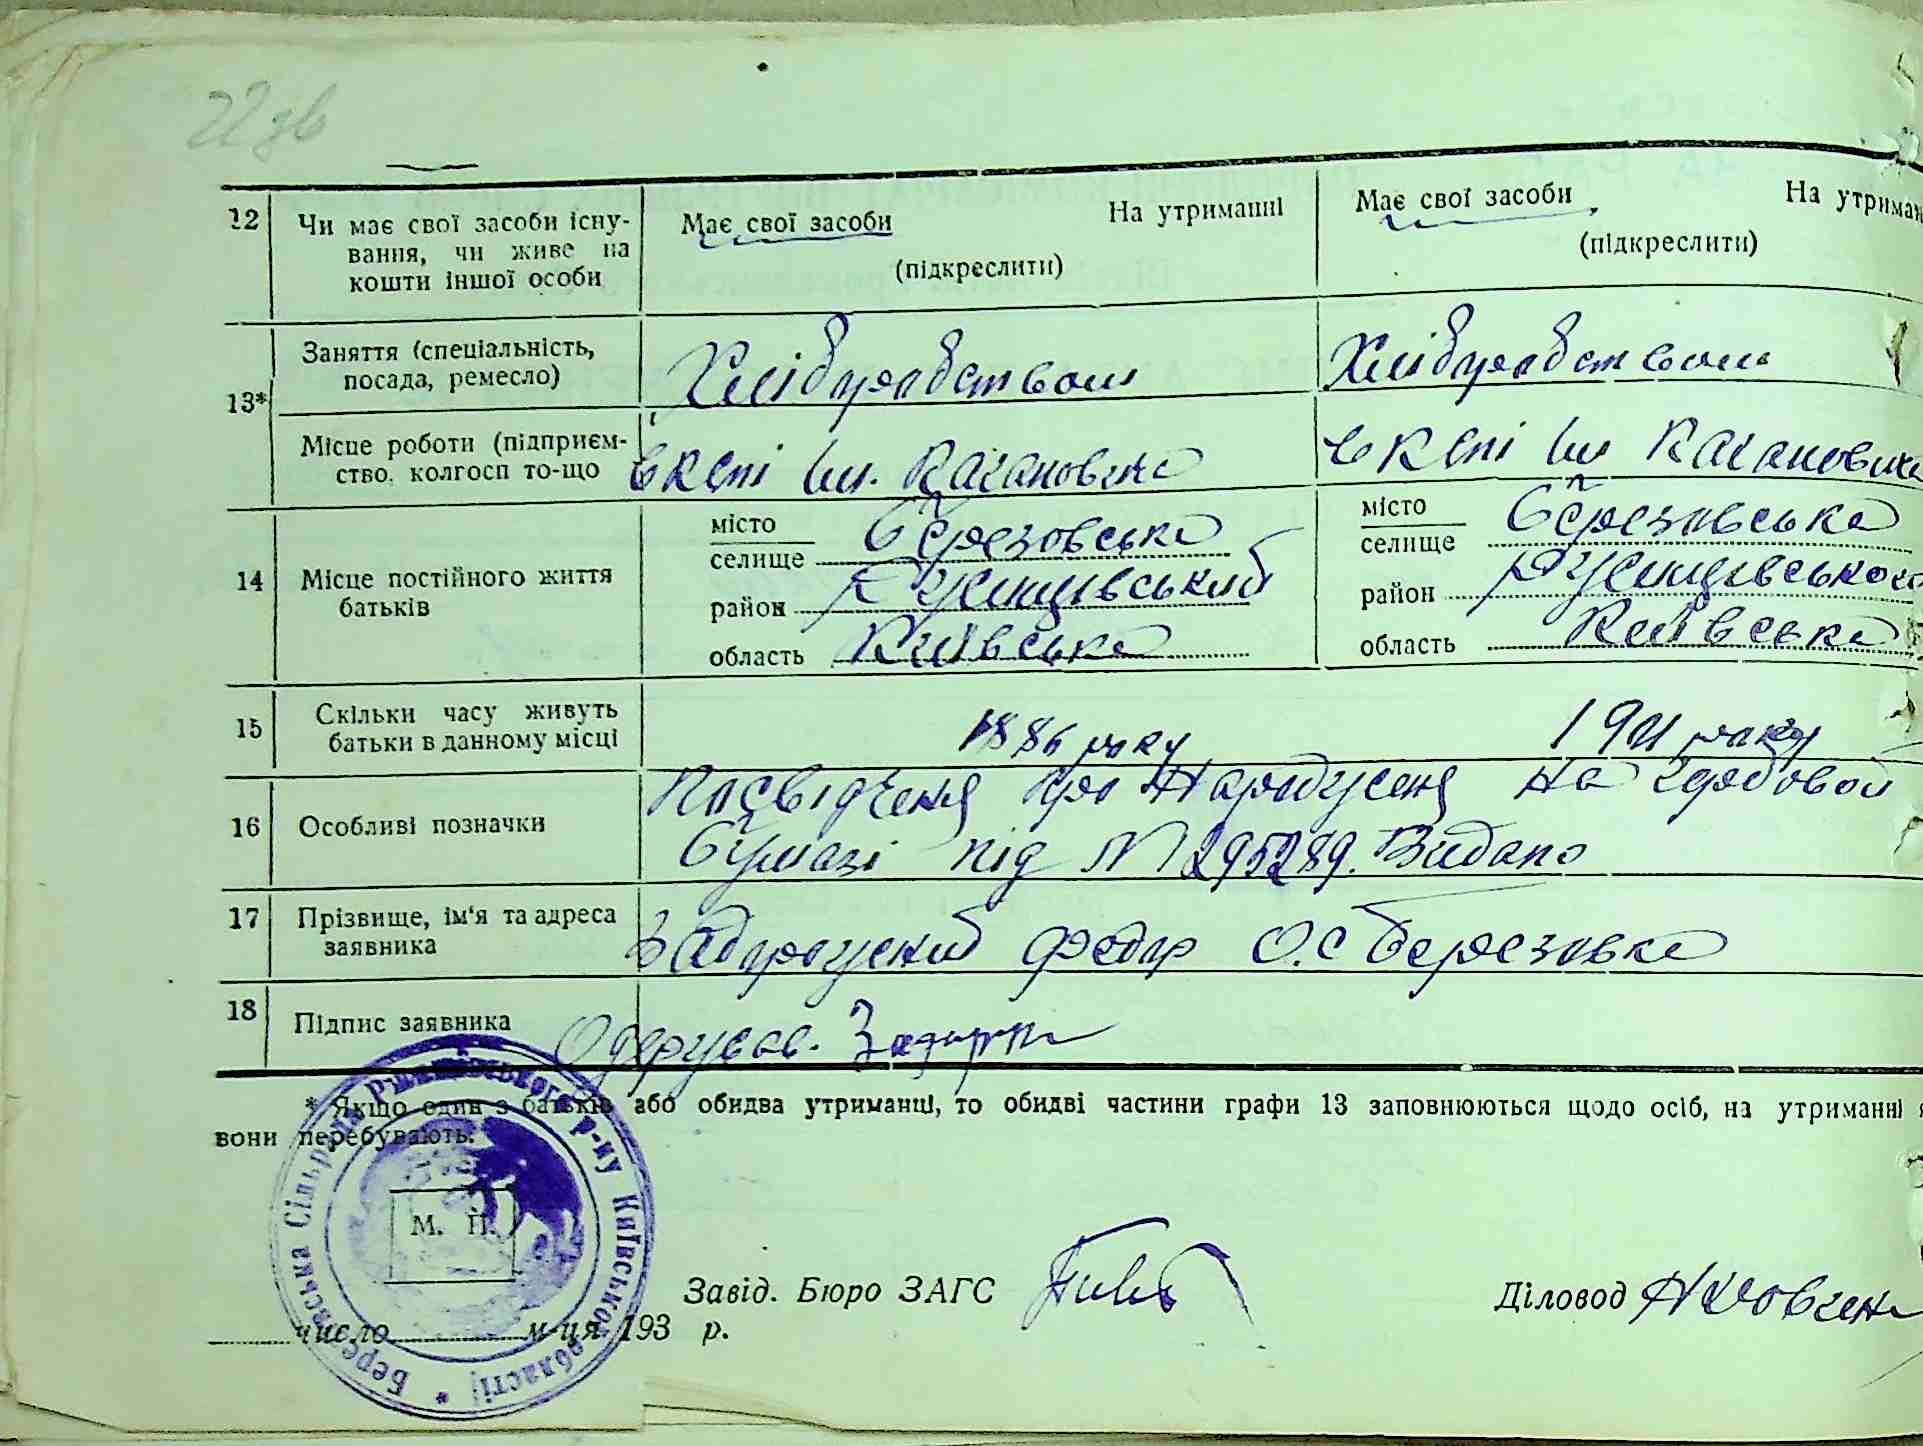 22 зв
12 Чи має свої засоби існу- Має свої засоби На утриманні Має свої засоби На утриман
вання, чи живе на (підкреслити) (підкреслити)
кошти іншої особи
13* Заняття (спеціальність, Хліборобством Хліборобством
посада, ремесло)
Місце роботи (підприєм- в ксгі Ім. Кагановича в ксгі Ім Кагановича
ство, колгосп то-що
14 Місце постійного життя батьків
місто селище с Березовська місто селище с Березовська
район Ружинцівський район Ружинцівського
область Київська область Київська
15 Скільки часу живуть 1886 року 1911 року
батьки в данному місці
16 Особливі позначки Посвідченя про Народженя на гербовой
бумазі під № 295289. Видано
17 Прізвище, ім‘я та адреса Федір О. с Березовка
заявника
18 Підпис заявника Одержував.
* Якщо один з батьків або обидва утриманці, то обидві частини графи 13 заповнюються щодо осіб, на утриманні я
вони перебувають.
М. П.
Завід. Бюро ЗАГС Діловод
число м-ця 193 р.
Сільрада р-ну Київської області *